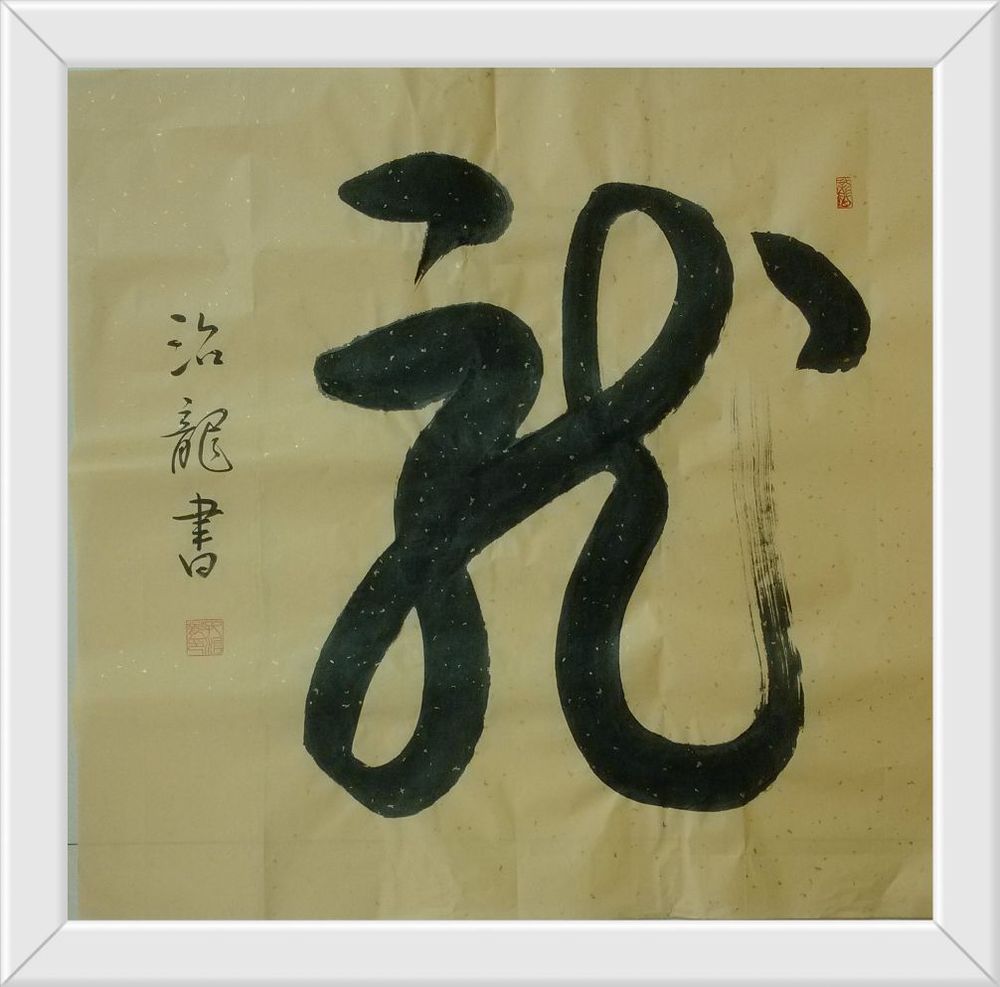 龍
治龍書